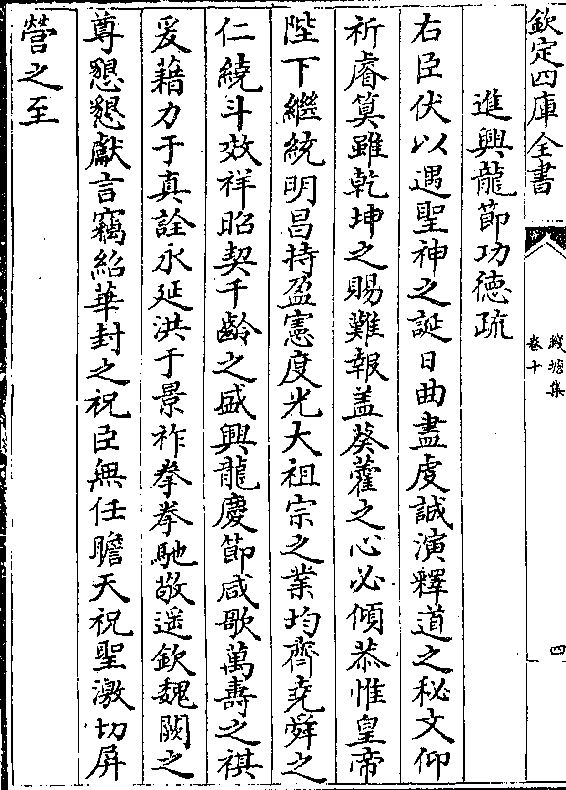 欽定四庫全書
縠塘集
卷十
四
進興龍節功德疏
右臣伏以遇聖神之誕日曲盡虔誠演釋道之秘文仰
祈睿算雖乾坤之賜難報盖葵藿之心必傾恭惟皇帝
陛下繼統明昌持盈憲度光大祖宗之業均齊堯舜之
仁繞斗效祥昭契千齡之盛興龍慶節咸歌萬壽之祺
爰藉力于真詮永延洪于景祚拳拳馳敬遥欽魏闕之
尊懇懇獻言竊紹華封之祝臣無任瞻天祝聖激切屏
營之至